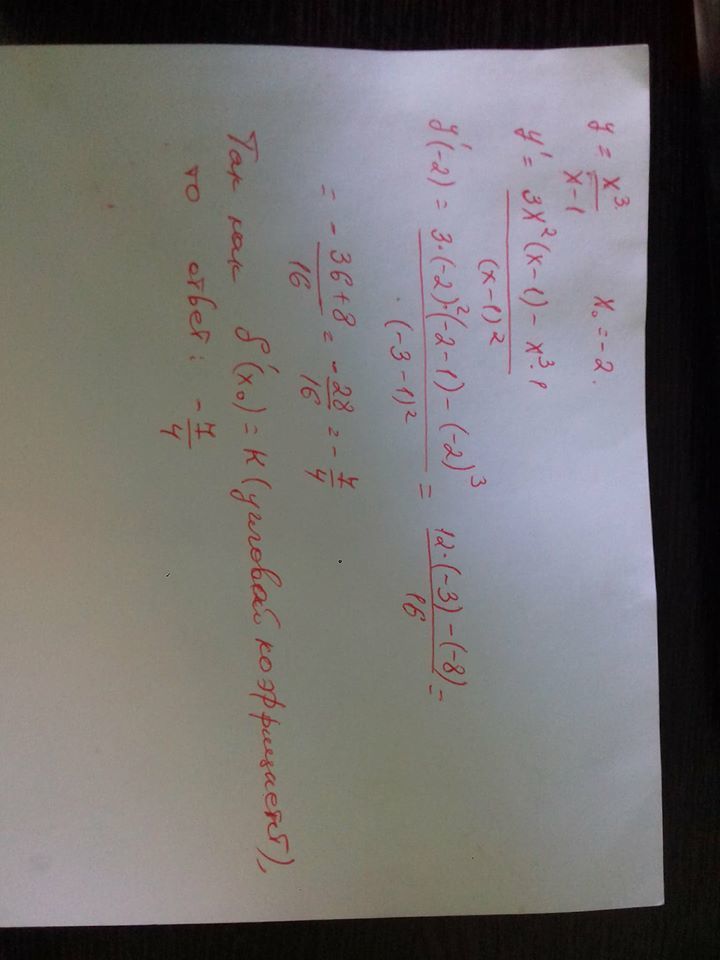 y = x³/(x-1)    x₀ = -2.
y' = (3x²(x-1) - x³·1)/(x-1)²
y'(-2) = (3·(-2)²(-2-1) - (-2)³)/(-3-1)² = (12·(-3) - (-8))/16 =
= (-36+8)/16 = -28/16 = -7/4
Так как f'(x₀) = k (угловой коэффициент),
то ответ: -7/4